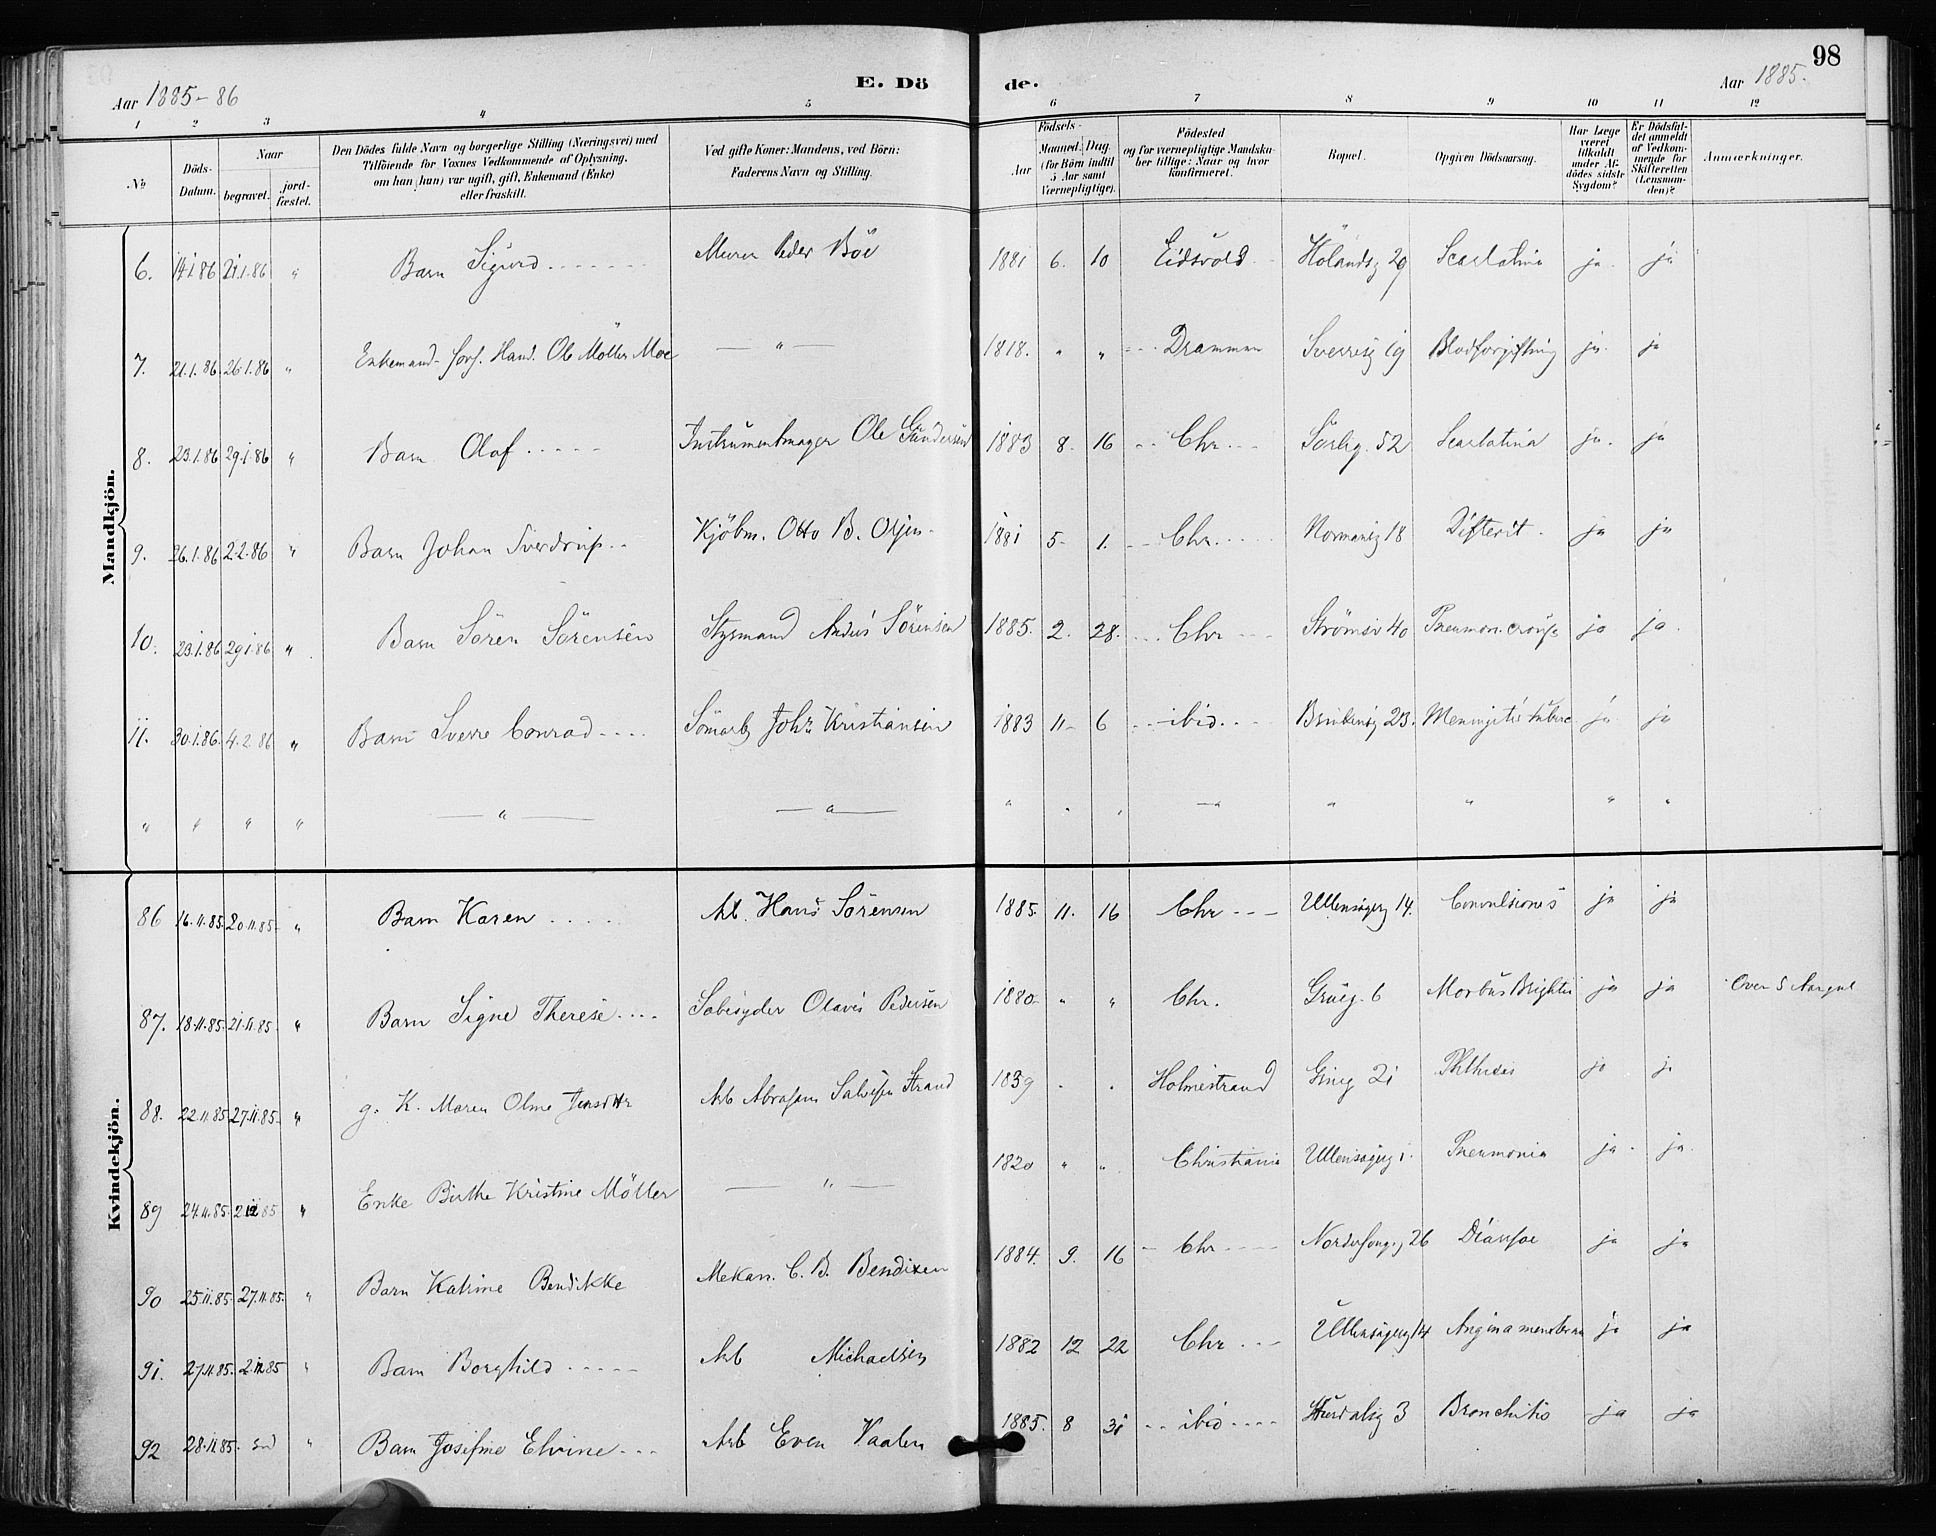 98
Aar 1885-86 E. Dö de. Aar 1885.
1 2 3 4 5 6 7 8 9 10 11 12
No Döds-Datum. Naar begravet. jord-fæstet. Den Dödes fulde Navn og borgerlige Stilling (Næringsvei) med Tilföiende for Voxnes Vedkommende af Oplysning, om han (hun) var ugift, gift, Enkemand (Enke) eller fraskilt. Ved gifte Koner: Mandens, ved Börn: Faderens Navn og Stilling. Födsels- Aar Maaned. Dag. (for Börn indtil 5 Aar samt Værnepligtige). Födested og for værnepligtige Mandskaber tillige: Naar og hvor konfirmeret. Bopæl. Opgiven Dödsaarsag. Har Læge været tilkaldt under Afdödes sidste Sygdom? Er Dödsfaldet anmeldt af Vedkommende for Skifteretten (Lensmanden)? Anmærkninger.
Mandkjön.
6. 14.1.86 21.1.86 " Barn Sigurd Murer Peder Böe 1881 6. 10 Eidsvold Hölandsg 29 Scarlatina ja ja
7. 21.1.86 26.1.86 " Enkemand Hand. Ole Möller Moe — " — 1818. " " Drammen Sverresg 19 Blodforgiftning ja ja
8. 23.1.86 29.1.86 " Barn Olaf Instrumentmager Ole Gundersen 1883 8. 16 Chr Sörlig. 52 Scarlatina ja ja
9. 26.1.86 2.2.86 " Barn Johan Sverdrup Kjöbm. Otto B. Olsen 1881 5 1. Chr. Normansg 18 Difterit ja ja
10. 23.1.86 29.1.86 " Barn Sören Sörensen Styrmand Sörensen 1885. 2. 28. Chr Strömsv 40 Pneumon. croup ja ja
11. 30.1.86. 4.2.86 " Barn Sverre Conrad Sömarb Joh. Kristiansen 1883 11 6 ibid. 23. Meningitis tuberc ja ja
" " " " — " — — " — " " " — " " " " "
Kvindekjön.
86 16.11.85. 20.11.85 " Barn Karen Arb. Hans Sörensen 1885. 11. 16 Chr Ullensagerg 14. Convulsiones ja ja
87. 18.11.85 21.11.85 " Barn Signe Therese Sæbesyder Olaves Pedersen 1880 " " Chr. Grüeg. 6 Morbus Brightii ja ja Over 5 Aar gml
88. 22.11.85 27.11.85 " g. K. Maren Oline Jensdttr Arb Abraham Salvesen Strand 1839 " " Holmestrand 21 Phthisis ja ja
89 24.11.85. 2.12.85 " Enke Birthe Kristine Möller — " — 1820 " " Christiania Ullensagerg 1. Pneumonia ja ja
90 25.11.85. 27.11.85. " Barn Katrine Bendikke Mekan. C. B. Bendixen 1884. 9. 16 Chr 26 Diarrhoe ja ja
91. 27.11.85. 2.12.85 " Barn Borghild Arb Michaelsen 1882 12 22 Chr Ullensagerg 14 Angina membran ja ja
92 28.11.85. sd " Barn Josefine Elvine Arb Even Vaalen 1885. 8 31 ibid Hurdalsg 3 Bronchitis ja ja